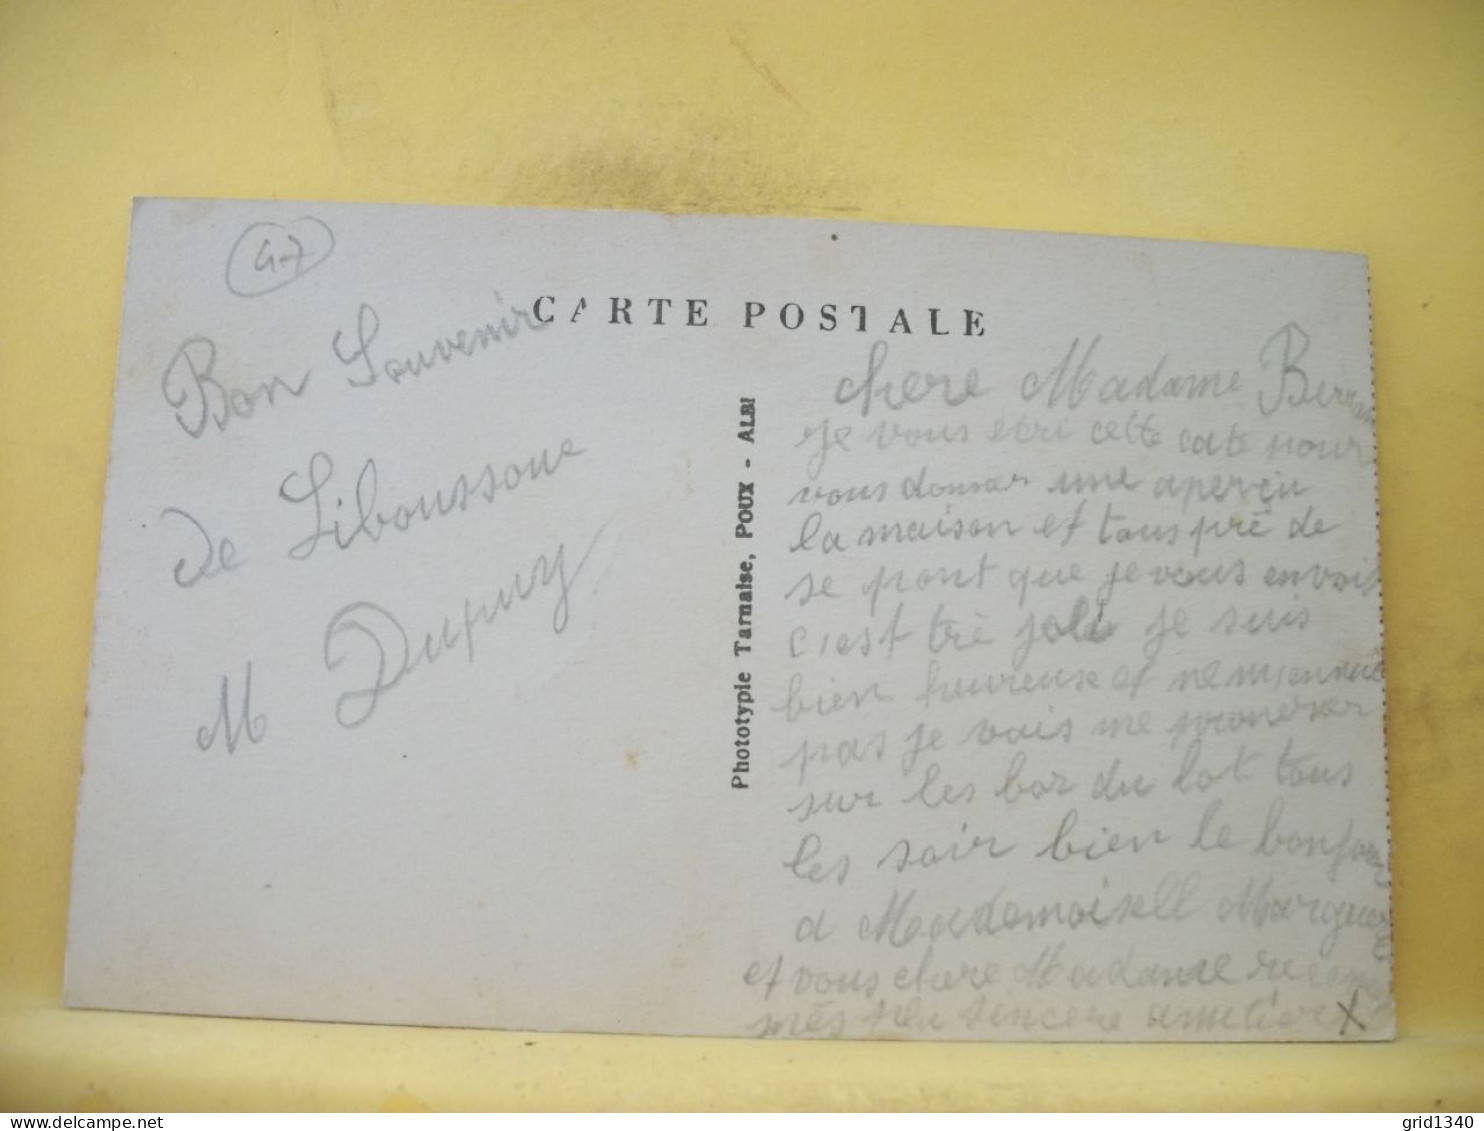 47
CARTE POSTALE
Bon Souvenir
de Liboussoue
M Dupuy
Phototypie Tarnaise, POUX - ALBI
chere Madame
je vous ecri cette cate pour
vous donner une aperçu
la maison et tous prê de
se pont que je vous envoit
c'est trè joli je suis
bien heureuse et ne m'ennuie
pas je vais me promener
sur les bor du lot tous
les soir bien le bonjour
a Mademoisell
et vous chere Madame
mês plu sincere
X
grid1340